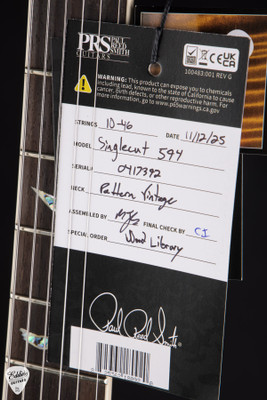 PRS PAUL REED SMITH
GUITARS
UK CA CE
100483:001 REV G
WARNING: This product can expose you to chemicals
including lead, known to the state of California to cause
cancer, birth defects, or other reproductive harm. For
more information, go to www.p65warnings.ca.gov
STRINGS 10-46 DATE 11/12/25
MODEL Singlecut 594
SERIAL# 0417392
NECK Pattern Vintage
ASSEMBLED BY FINAL CHECK BY CI
SPECIAL ORDER Wood Library
Paul Reed Smith